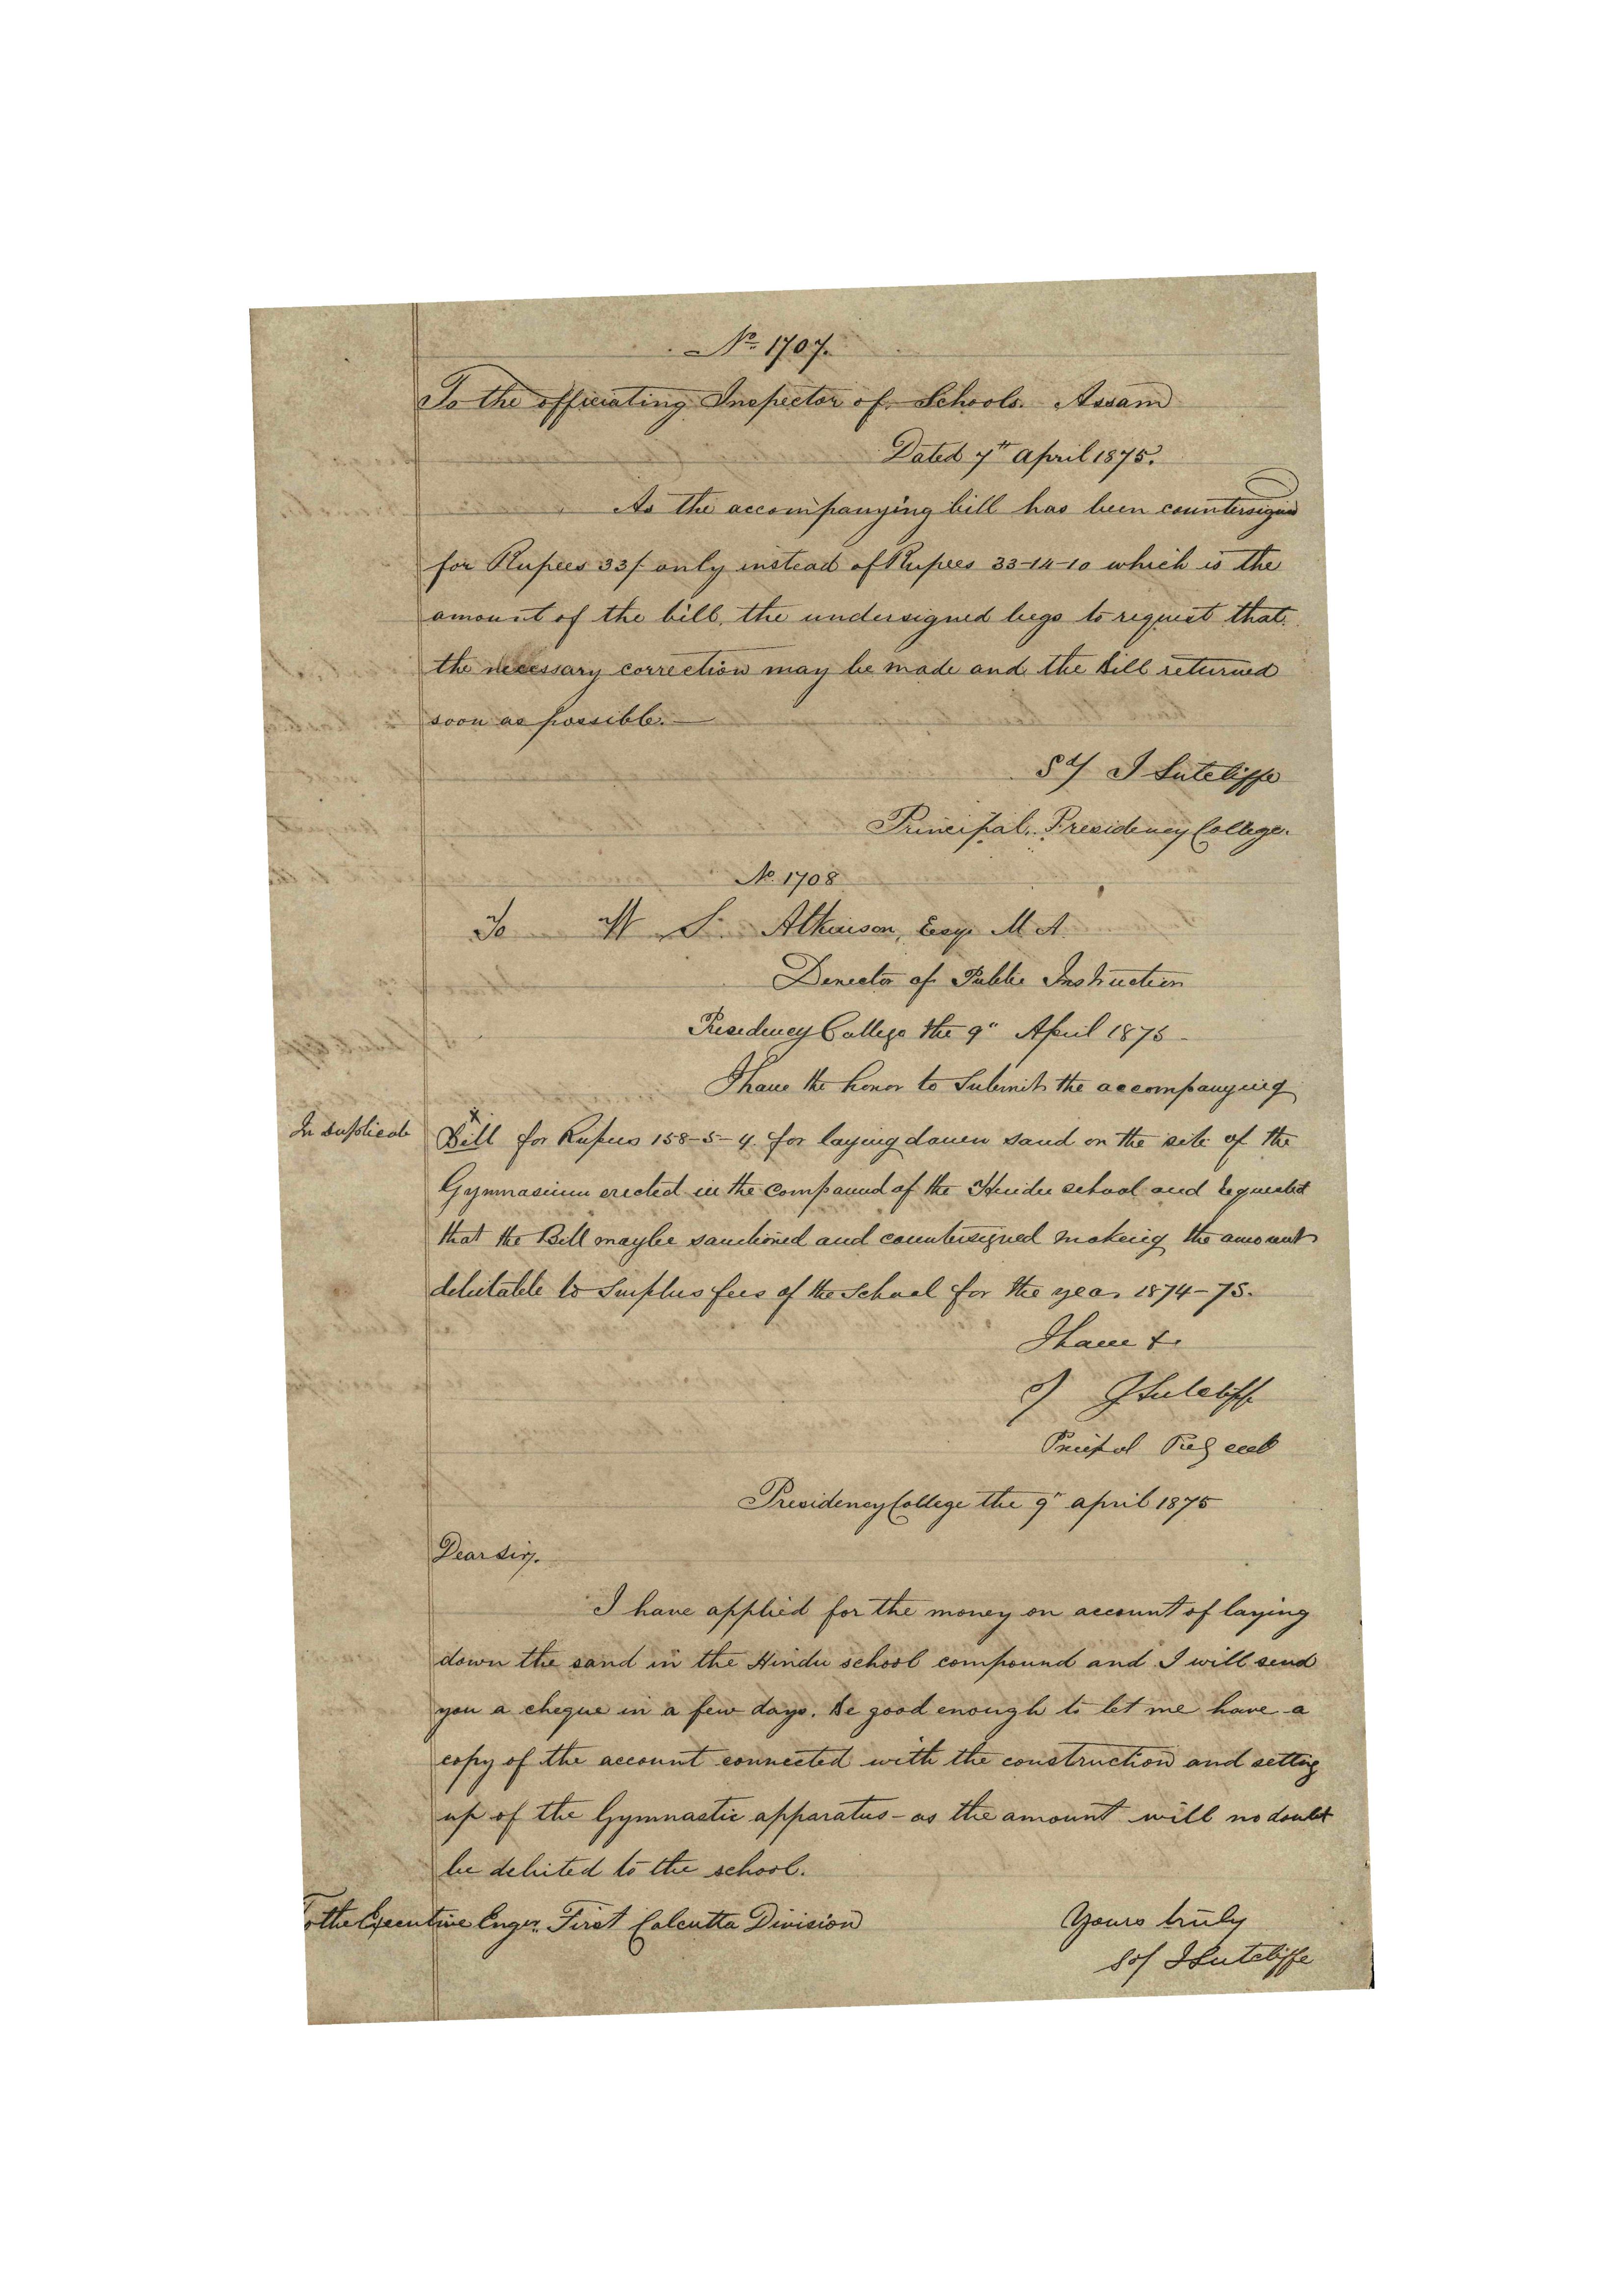 No. 1707.
To the officiating Inspector of Schools. Assam
Dated 7th April 1875.
As the accompanying bill has been countersigned
for Rupees 33/- only instead of Rupees 33-14-10 which is the
amount of the bill, the undersigned begs to request that
the necessary correction may be made and the Bill returned
soon as possible.—
Sd/ J Sutcliffe
Principal, Presidency College.
No. 1708
To W S. Atkinson, Esqr M A.
Director of Public Instruction
Presidency College the 9" April 1875 -
I have the honor to Submit the accompanying
In duplicate
x
Bill for Rupees 158-5-4 for laying down sand on the site of the
Gymnasium erected in the compound of the Hindu school and requested
that the Bill maybe sanctioned and countersigned making the amount
debitable to Surplus fees of the School for the year 1874-75.
I have &c
S/ J Sutcliffe
Principal
Presidency College the 9" april 1875
Dear Sir,
I have applied for the money on account of laying
down the sand in the Hindu school compound and I will send
you a cheque in a few days. Be good enough to let me have a
copy of the account connected with the construction and setting
up of the Gymnastic apparatus - as the amount will no doubt
be debited to the school.
To the Executive Engr. First Calcutta Division
Yours truly
Sd/ J Sutcliffe